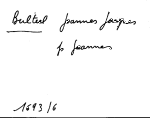 Bulteel Joannes Jacques
p Joannes
1693/6